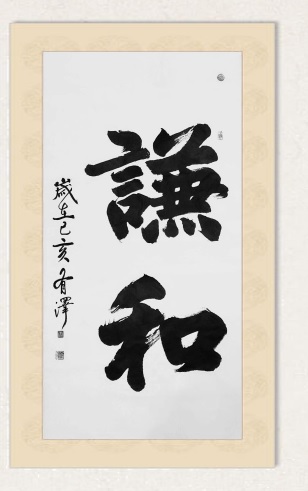 謙和
歲在己亥 有澤